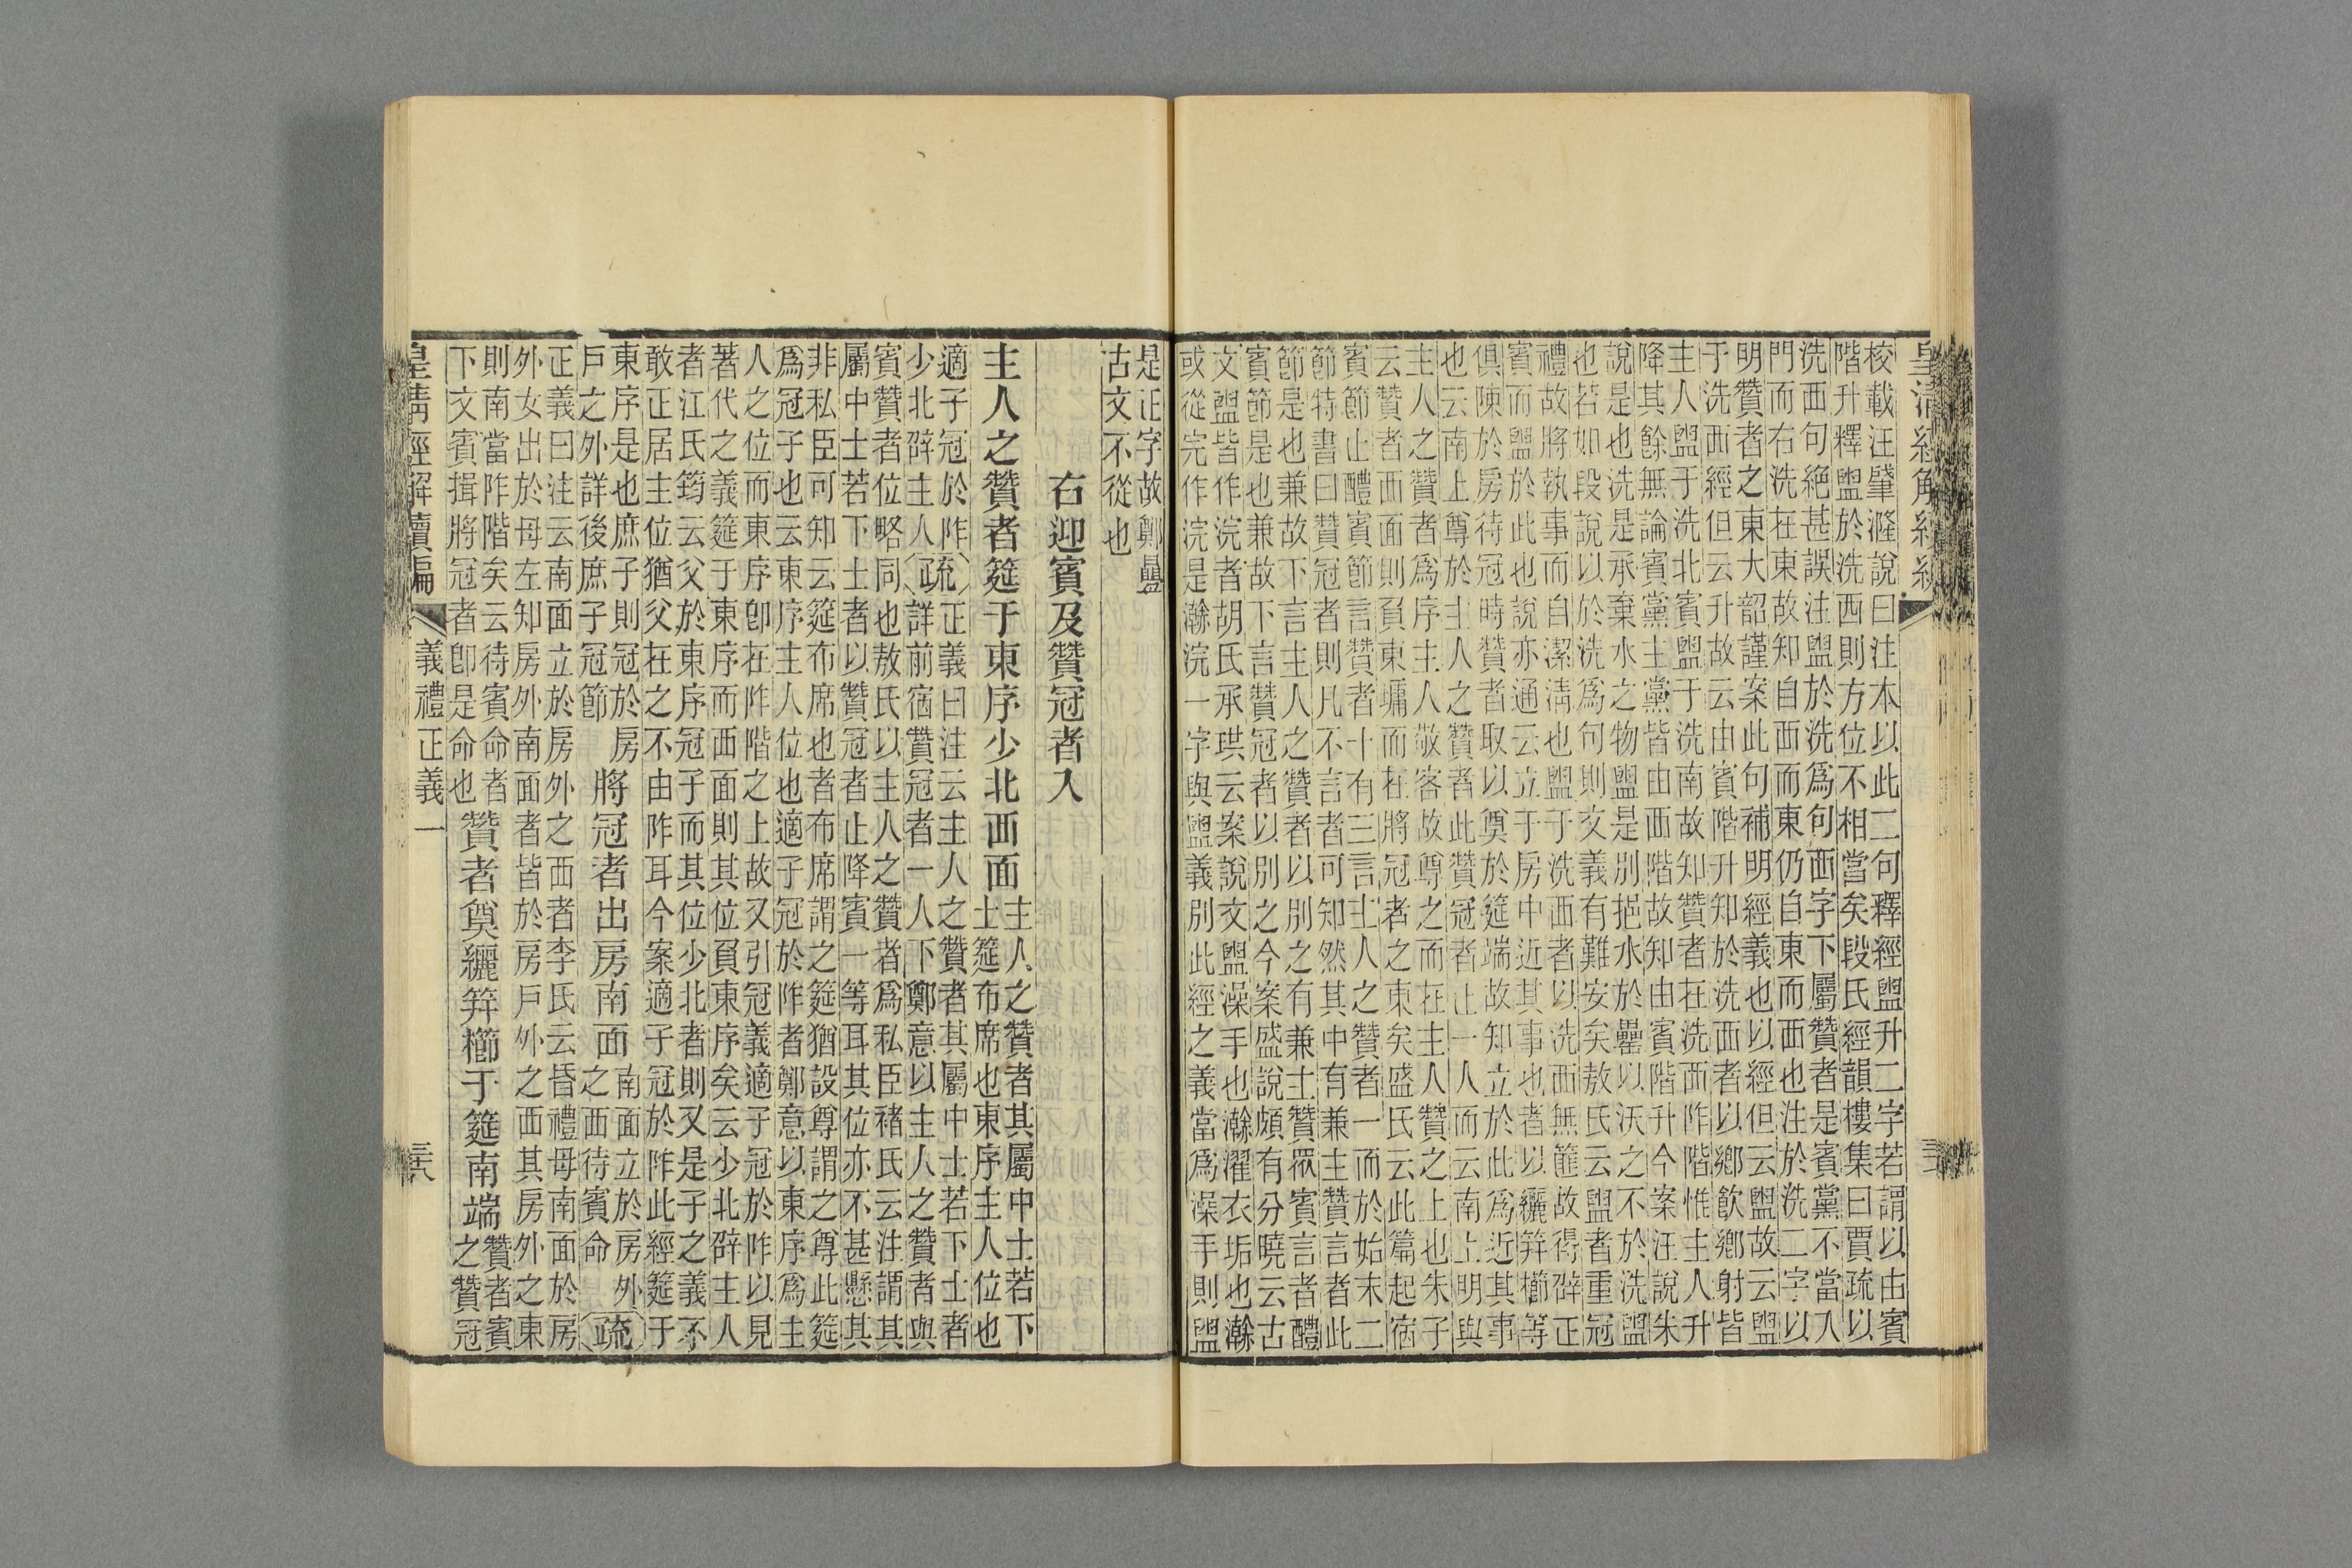 皇清經解續編
校載汪肇漋說曰注本以此二句釋經盥升二字若謂以由賓
階升釋盥於洗西則方位不相當矣段氏經韻樓集曰賈疏以
洗西句絕甚誤注盥於洗爲句西字下屬贊者是賓黨不當入
門而右洗在東故知自西而東仍自東而西也注於洗二字以
明贊者之東大韶謹案此句補明經義也以經但云盥故云盥
于洗西經但云升故云由賓階升知於洗西者以鄉飲鄉射皆
主人盥于洗北賓盥于洗南故知贊者在洗西阼階惟主人升
降其餘無論賓黨主黨皆由西階故知由賓階升今案汪說朱
說是也洗是承棄水之物盥是別挹水於罍以沃之不於洗盥
也若如段說以於洗爲句則文義有難安矣敖氏云盥者重冠
禮故將執事而自潔淸也盥于洗西者以洗西無篚故得辟正
賓而盥於此也說亦通云立于房中近其事也者以纚笄櫛等
俱陳於房待冠時贊者取以奠於筵端故知立於此爲近其事
也云南上尊於主人之贊者此贊冠者止一人而云南上明與
主人之贊者爲序主人敬客故尊之而在主人贊之上也朱子
云贊者西面則負東墉而在將冠者之東矣盛氏云此篇起宿
賓節止醴賓節言贊者十有三言主人之贊者一而於始末二
節特書曰贊冠者則凡不言者可知然其中有兼主贊言者此
節是也兼故下言主人之贊者以別之有兼士贊眾賓言者醴
賓節是也兼故下言贊冠者以別之今案盛說頗有分曉云古
文盥皆作浣者胡氏承珙云案說文盥澡手也瀚濯衣垢也瀚
或從完作浣是瀚浣一字與盥義別此經之義當爲澡手則盥
是正字故鄭疊
古文不從也
右迎賓及贊冠者入
主人之贊者筵于東序少北西面
主人之贊者其屬中士若下
士筵布席也東序主人位也
適子冠於阼
少北辟主人
疏
正義曰注云主人之贊者其屬中士若下士者
詳前宿贊冠者一人下鄭意以主人之贊者與
賓贊者位略同也敖氏以主人之贊者爲私臣褚氏云注謂其
屬中士若下士者以贊冠者止降賓一等耳其位亦不甚懸其
非私臣可知云筵布席也者布席謂之筵猶設尊謂之尊此筵
爲冠子也云東序主人位也適子冠於阼者鄭意以東序爲主
人之位而東序卽在阼階之上故又引冠義適子冠於阼以見
著代之義筵于東序而西面則其位負東序矣云少北辟主人
者江氏筠云父於東序冠子而其位少北者則又是子之義不
敢正居主位猶父在之不由阼耳今案適子冠於阼此經筵于
東序是也庶子則冠於房
戶之外詳後庶子冠節
將冠者出房南面
南面立於房外
之西待賓命
疏
正義曰注云南面立於房外之西者李氏云昏禮母南面於房
外女出於母左知房外南面者皆於房戶外之西其房外之東
則南當阼階矣云待賓命者
下文賓揖將冠者卽是命也
贊者奠纚笄櫛于筵南端
贊者賓
之贊冠
皇清經解續編
義禮正義一
三十八